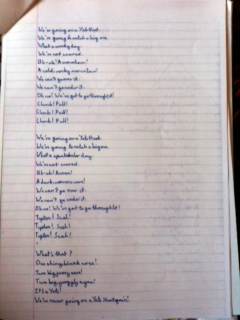 We're going on a Yeti Hunt.
We're going to catch a big one.
What a lovely day.
We're not scared.
Uh-oh! A mountain!
A cold, snowy mountain!
We can't go over it.
We can't go under it.
Oh no! We've got to go through it!
Climb! Puff!
Climb! Puff!
Climb! Puff!
We're going on a Yeti Hunt.
We're going to catch a big one.
What a spectacular day.
We're not scared.
Uh-oh! A cave!
A dark cave!
We can't go over it.
We can't go under it.
Oh no! We've got to go through it!
Tiptoe!
Tiptoe!
Tiptoe!
What's that?
One shiny black nose!
Two big furry ears!
Two big googly eyes!
It's a Yeti!
We're never going on a Yeti Hunt again!